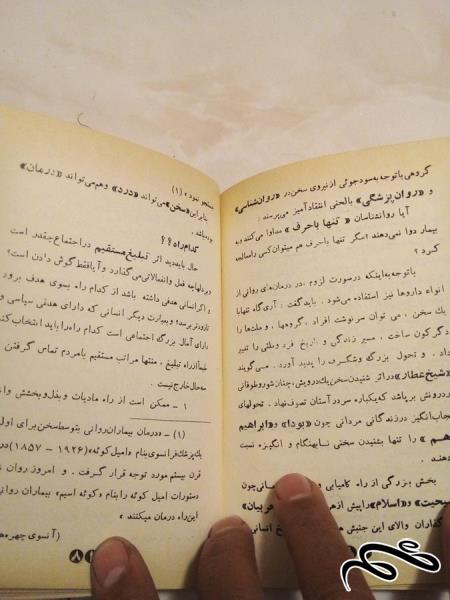 گروهی باتوجه به سودجوئی از نیروی سخن در «روان‌شناسی»
و «روان‌پزشگی» بالحنی انتقادآمیز می‌پرسند :
آیا روانشناسان « تنها باحرف » مداوا می‌کنند و به
بیمار دوا نمی‌دهند ؟ مگر تنها باحرف هم میتوان کسی را معالجه
کرد ؟
باتوجه به اینکه درصورت لزوم ، در درمان‌های روانی از
انواع داروها نیز استفاده می‌شود ، باید گفت : آری گاه تنها با
یک سخن ، می توان سرنوشت افراد ، گروهها ، و ملت‌ها را
دگرگون ساخت ، مسیر زندگی و تاریخ فرد و ملتی را تغییر
داد . و تحولی بزرگ و شگرف را پدید آورد . می‌گویند
«شیخ عطار» در اثر شنیدن سخن یک درویش، چنان شور و طوفانی
دردرونش برپا شد که یکباره سر در آستان تصوف نهاد . تحولهای
عجاب‌انگیز درزندگانی مردانی چون «بودا» و «ابراهیم
هم» را تنها بشنیدن سخنی نابهنگام و انگیزه نسبت
دهند .
بخش بزرگی از راه کامیابی و چون
«مسیحیت» و «اسلام» را پیش از هر
گذاران والای این جنبش انسانی
ستجو نمود . (۱)
بنابراین «سخن» می‌تواند «درد» وهم می‌تواند «درمان»
بوده باشد .
کدام راه ؟؟
حال بایددید اثر تبلیغ مستقیم دراجتماع چقدر است
ودرآنها چه فعل وانفعالاتی می‌گذارد و آیا فقط گوش دادن است؟
اگر انسانی هدفی داشته باشد از کدام راه بسوی هدف برود
تازودتر برسد؟ وبعبارت دیگر انسانی که دارای هدفی سیاسی و
دارای آمال بزرگ اجتماعی است کدام راه را باید انتخاب کند
تبلیغ ، منتها مراتب مستقیم بامردم تماس گرفتن
حال خارج نیست .
۱ – ممکن است از راه مادیات و بذل و بخشش وارد
(۱) – درمان بیماران روانی بتوسط سخن برای اول
یک پزشک فرانسوی بنام «امیل کوئه» (۱۹۲۶ – ۱۸۵۷) در
قرن بیستم مورد توجه قرار گرفت . و امروز روان
دستورات امیل کوئه را بنام «کوئه ایسم» بیماران روانی
این راه درمان میکنند .
(آنسوی چهره‌ها
۸